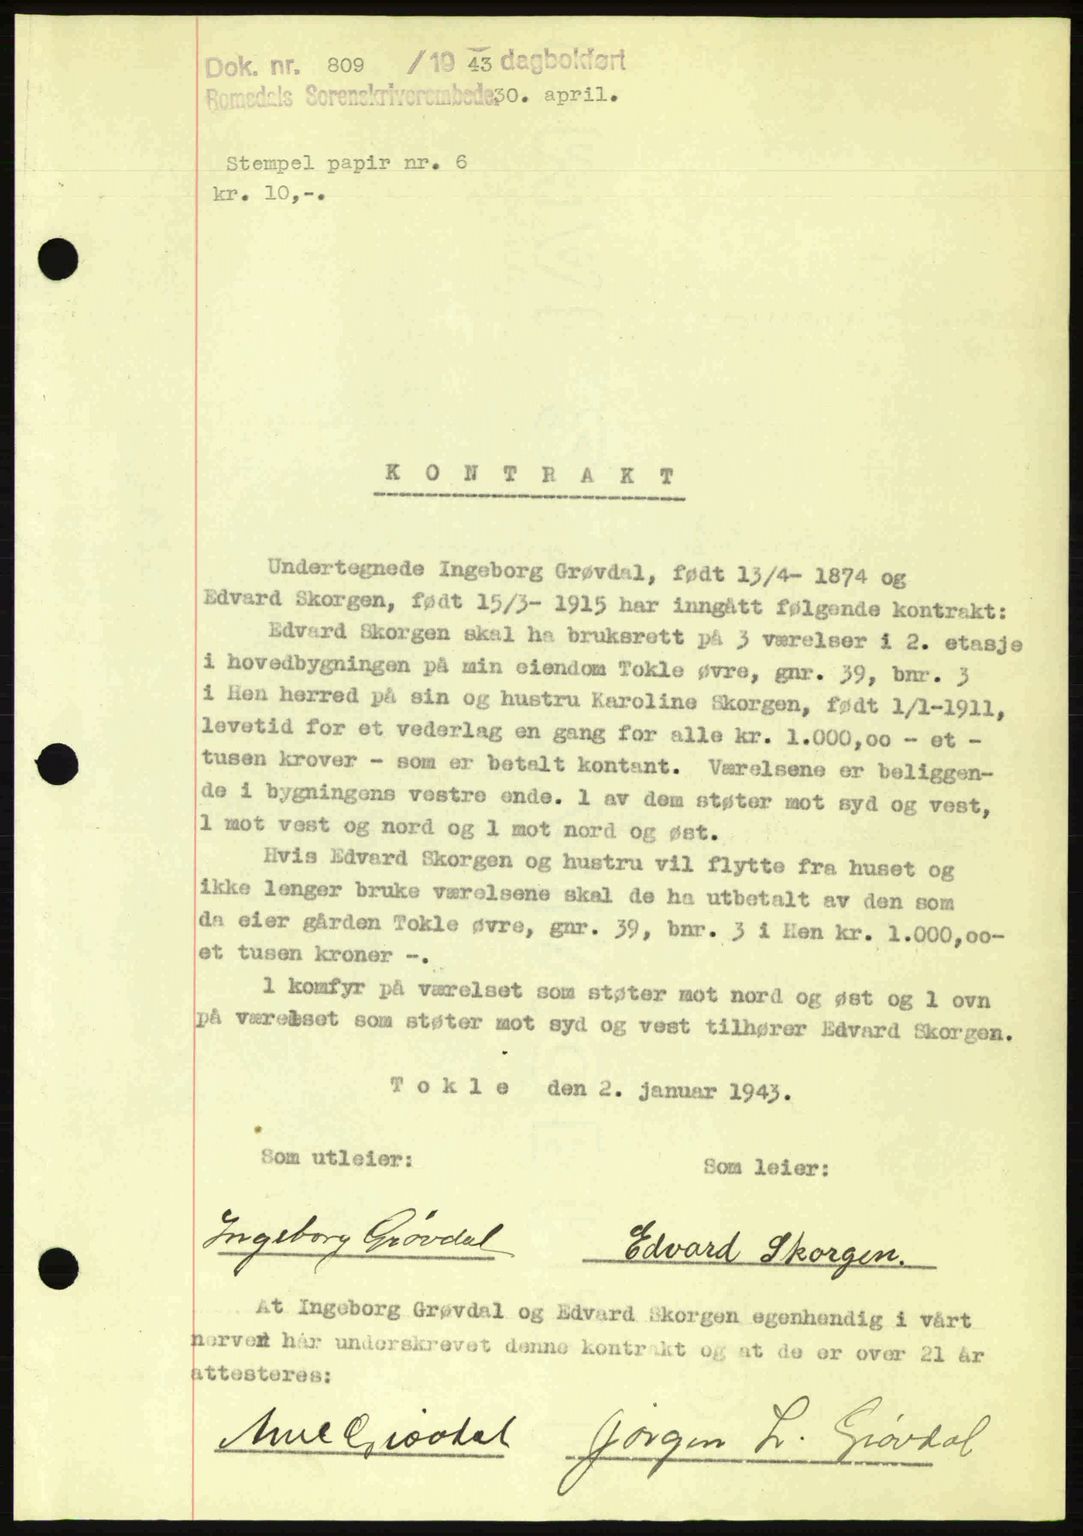 Dok. nr. 809 /19 43 dagbokført
Romsdals Sorenskriverembede 30. april.
Stempel papir nr. 6
kr. 10,-.
K O N T R A K T
Undertegnede Ingeborg Grøvdal, født 13/4- 1874 og
Edvard Skorgen, født 15/3- 1915 har inngått følgende kontrakt:
Edvard Skorgen skal ha bruksrett på 3 værelser i 2. etasje
i hovedbygningen på min eiendom Tokle øvre, gnr. 39, bnr. 3
i Hen herred på sin og hustru Karoline Skorgen, født 1/1-1911,
levetid for et vederlag en gang for alle kr. 1.000,oo - et -
tusen krover - som er betalt kontant. Værelsene er beliggen-
de i bygningens vestre ende. 1 av dem støter mot syd og vest,
1 mot vest og nord og 1 mot nord og øst.
Hvis Edvard Skorgen og hustru vil flytte fra huset og
ikke lenger bruke værelsene skal de ha utbetalt av den som
da eier gården Tokle øvre, gnr. 39, bnr. 3 i Hen kr. 1.000,oo-
et tusen kroner -.
1 komfyr på værelset som støter mot nord og øst og 1 ovn
på værelset som støter mot syd og vest tilhører Edvard Skorgen.
T o k l e den 2. januar 1943.
Som utleier: Som leier:
Ingeborg Grövdal Edvard Skorgen.
At Ingeborg Grøvdal og Edvard Skorgen egenhendig i vårt
nervær har underskrevet denne kontrakt og at de er over 21 år
attesteres:
Arne Grövdal Jörgen L. Grövdal